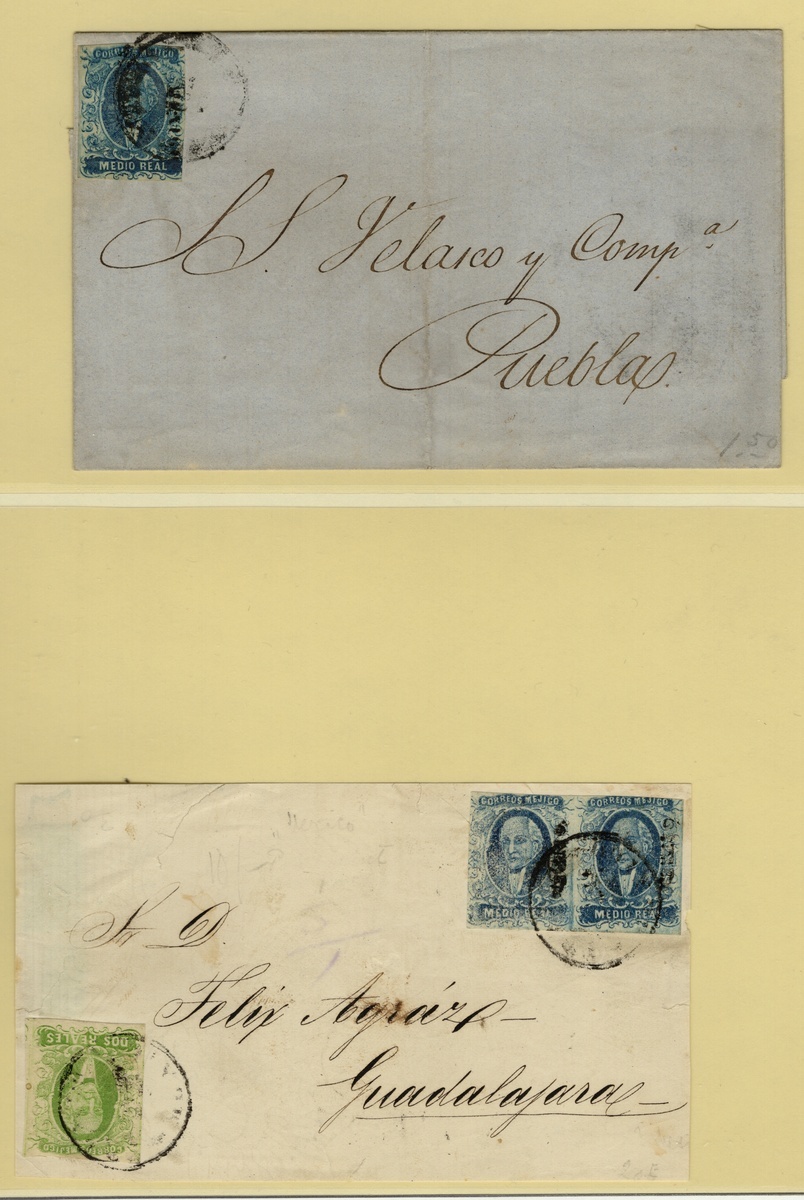 CORREOS MEJICO
MEDIO REAL
S S. Velasco y Compª
Puebla.
1.50
CORREOS MEJICO CORREOS MEJICO
MEDIO REAL MEDIO REAL
Sr D.
Felix Agráz
Guadalajara
DOS REALES
CORREOS MEJICO